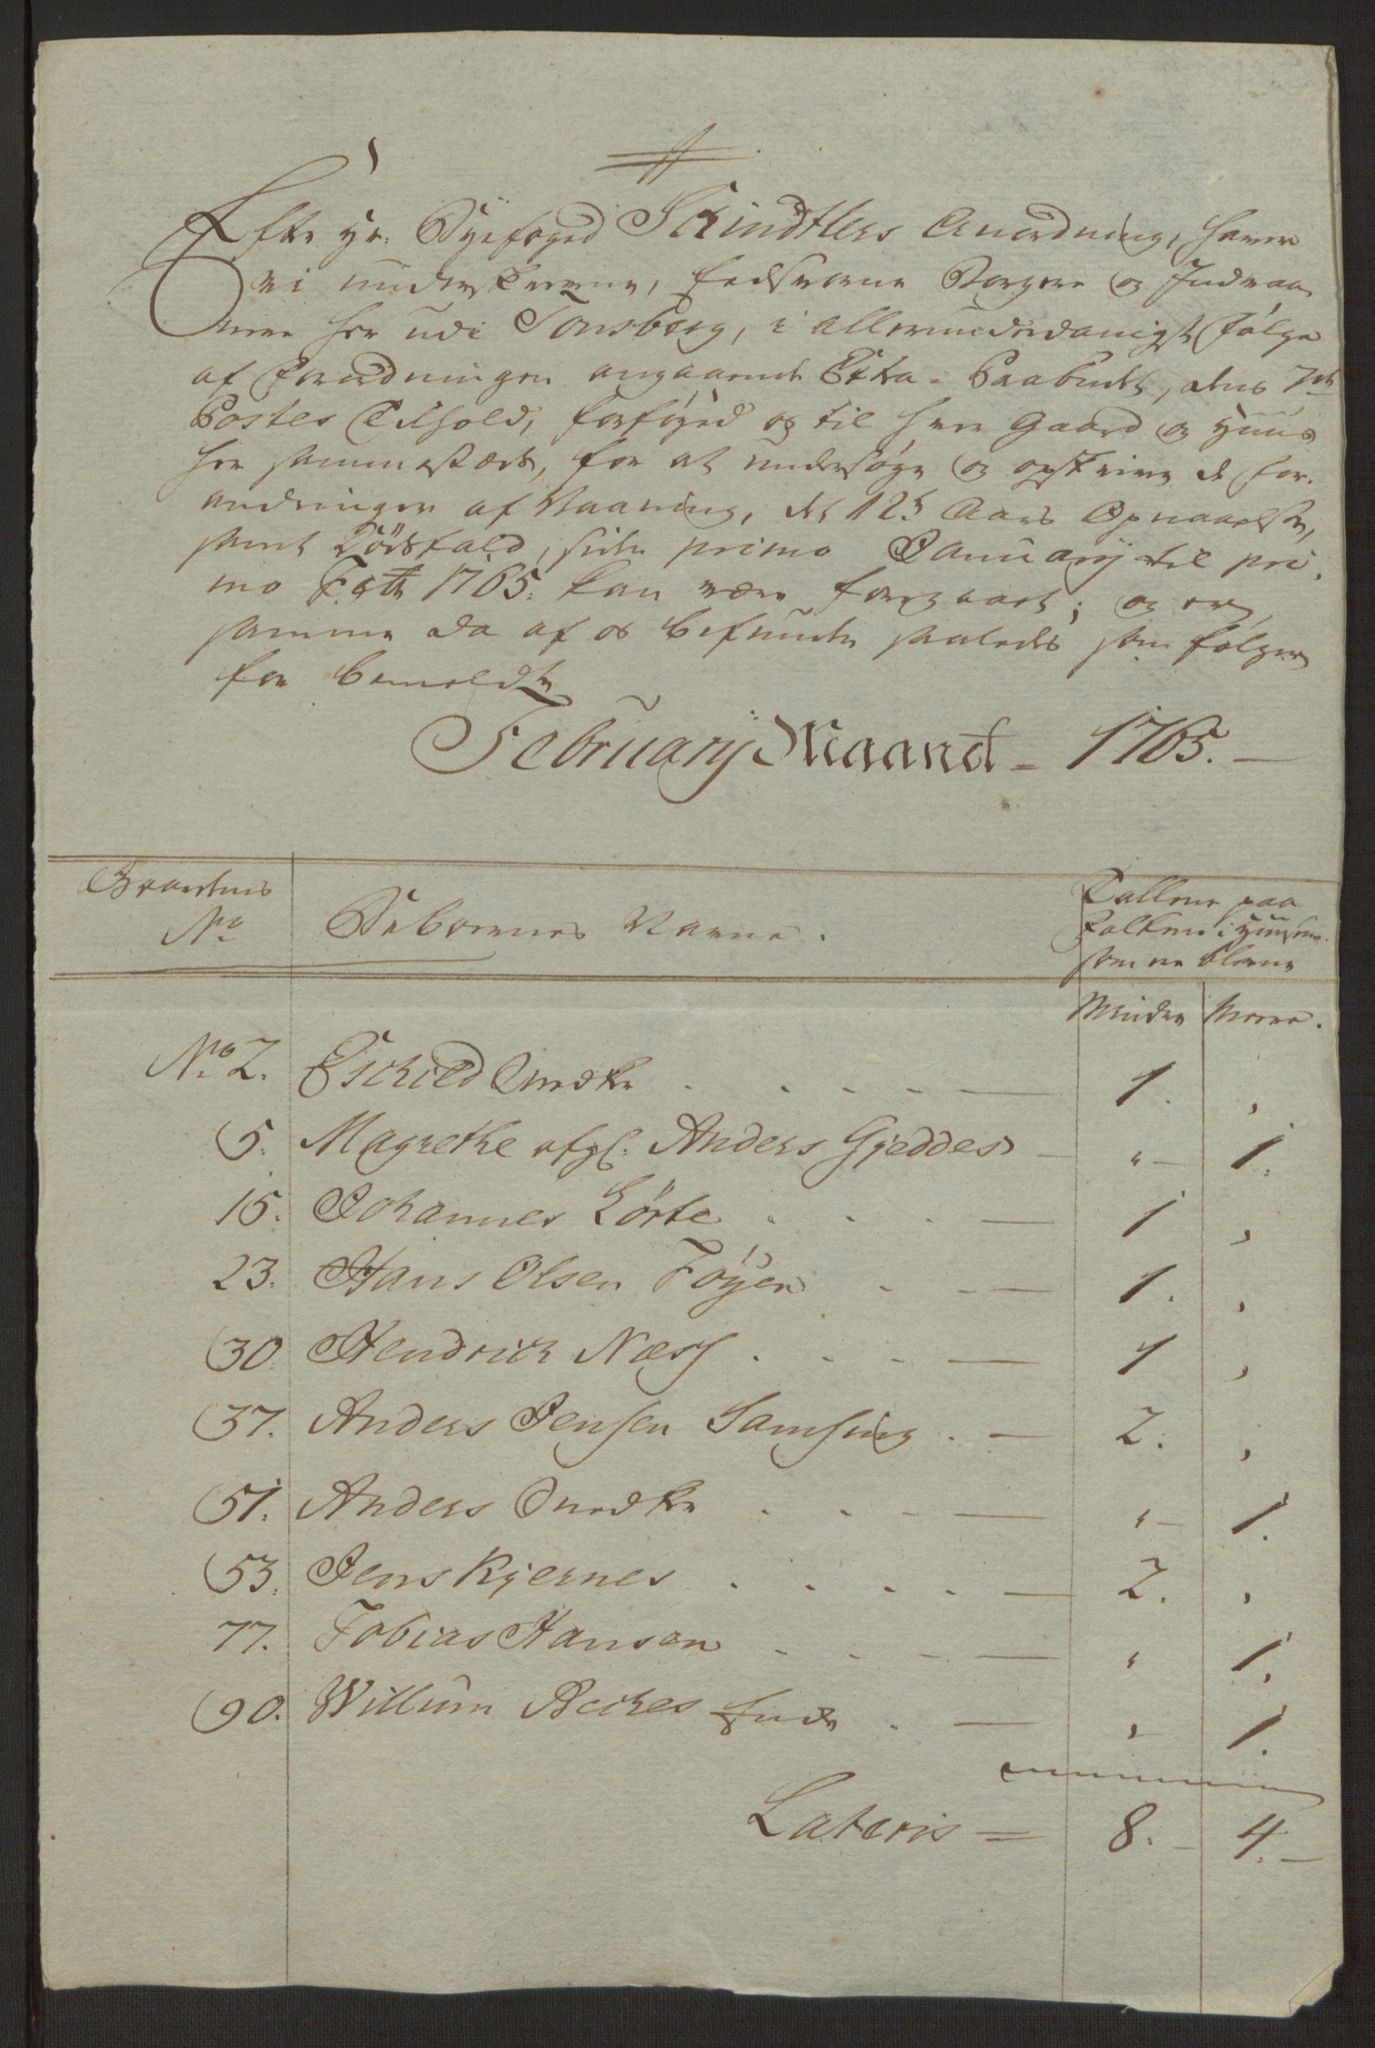 Efter Hr: Byefoged Schindtlers Anordning, haver
vi underskrevne, Eedsvorne Borgere og Indvaa
nere her udi Tønsberg, i allerunderdanigst følge
af Forordningen angaaende Extra-Paabudet, dens 7de
Postes Tilhold, forføyed os til hver Gaard og Huus
her sammestæds, for at undersøge og opskrive de for-
andringer af Vaaning, det 12te Aars Opnaaelse,
samt Dödsfald, siden primo January til pri
mo Febr 1765: kan være foregaaet; og er
samme da af os befunden saaledes som følger
for bemeldte
February Maaned - 1765. -
Gaardenes Tallene paa
No Beboernes Navne. Folkene i Huusene
som ere bleven
Mindre Meere.
No. 2. Eschild Smedke 1. ,
5. Magrethe afgl. Anders Gjeddes - " - 1.
15. Johannes Lørte 1 ,
23. Hans Olsen Föyen 1. ,
30. Hendrich Næss 1 ,
37. Anders Jensen Samsing 2. ,
51. Anders Smedke " - 1.
53. Jens Kjernes 2. ,
77. Tobias Hansen " 1.
90. Willum Beches Enke " - 1.
Lateris = 8. - 4. -